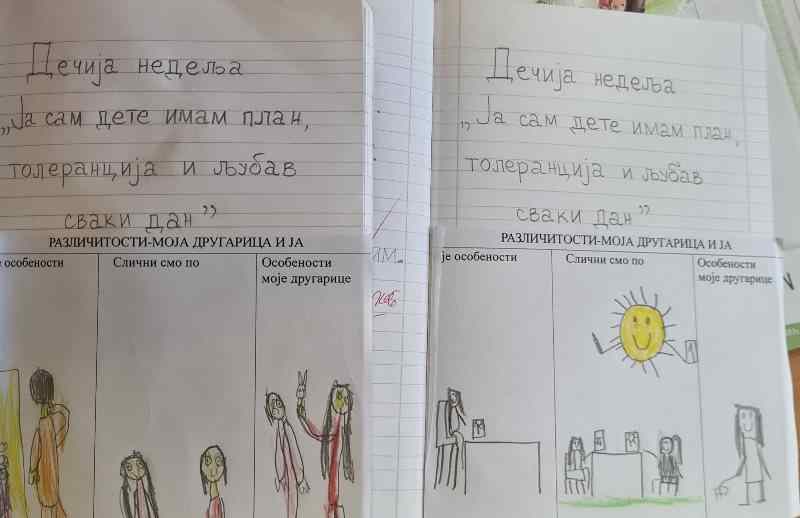 Дечија недеља
„Ја сам дете имам план,
толеранција и љубав
сваки дан”
РАЗЛИЧИТОСТИ-МОЈА ДРУГАРИЦА И ЈА
особености
Слични смо по
Особености
моје другарице
Дечија недеља
„Ја сам дете имам план,
толеранција и љубав
сваки дан”
РАЗЛИЧИТОСТИ-МОЈА ДРУГАРИЦА И ЈА
је особености
Слични смо по
Особености
моје другарице